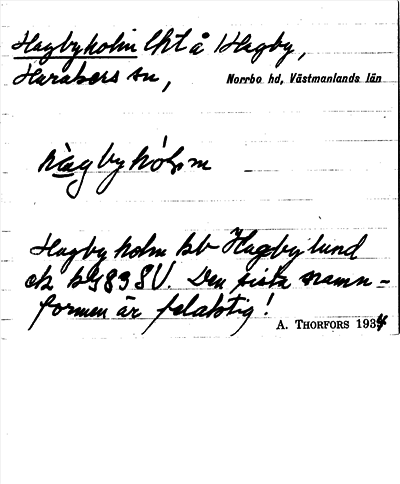 Hagbyholm lht å Hagby,
Harakers sn, Norrbo hd, Västmanlands län
hàgbyhól,m
Hagbyholm kb Hagbylund
ek bl 83 SV. Den sista namn-
formen är felaktig!
A. THORFORS 1934